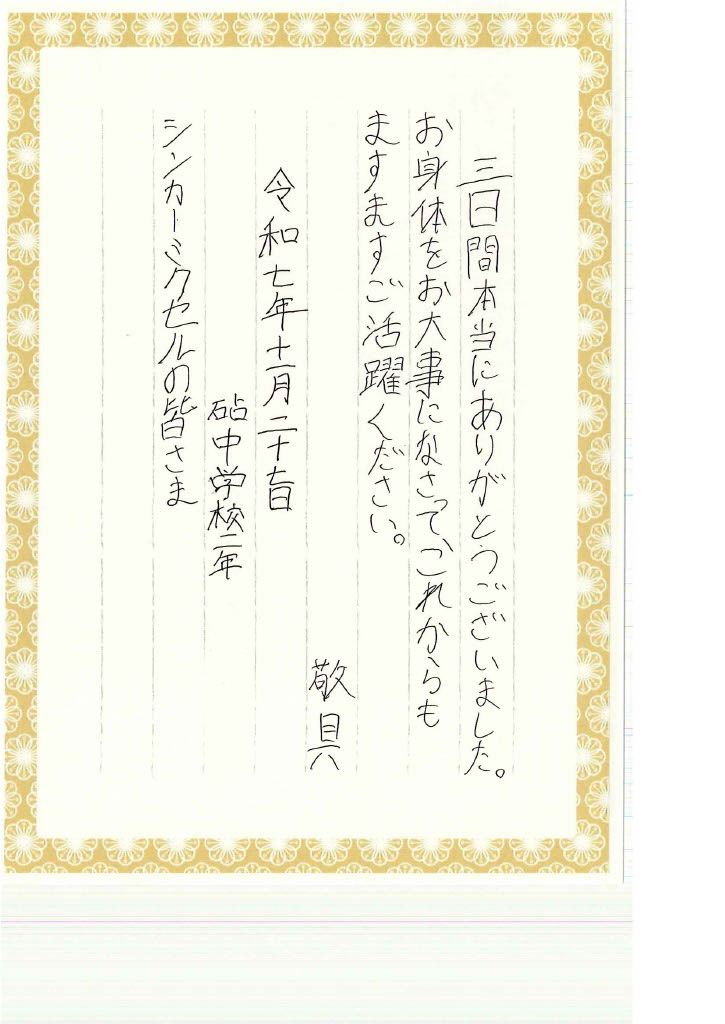 三日間本当にありがとうございました。
お身体をお大事になさって、これからも
ますますご活躍ください。
敬具
令和七年十一月二十七日
砧中学校二年
シンカーミクセルの皆さま